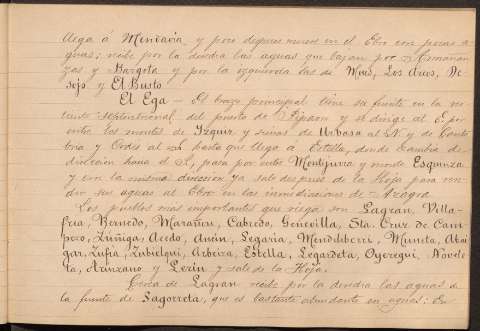 llega á Mendavia y poco despues muere en el Ebro con pocas a-
guas; recibe por la derecha las aguas que bajan por Armañan-
zas y Bargota y por la izquierda las de Mues, Los Arcos, De
sojo y El Busto
El Ega – El brazo principal tiene su fuente en la ver
tiente septentrional del puerto de Pipaon y se dirige al E. por
entre los montes de Izquiz y sierras de Urbasa al N. y de Canta
bria y Codés al S. hasta que llega á Estella, donde cambia de
direccion hacia el S., pasa por entre Montejurra y monte Esquinza
y con la misma direccion ya sale despues de la Hoja para ren-
dir sus aguas al Ebro en las inmediaciones de Azagra
Los pueblos mas importantes que riega son Lagran, Villa-
fria, Bernedo, Marañon, Cabredo, Genevilla, Sta. Cruz de Cam
pezo, Zúñiga, Acedo, Ancin, Legaria, Mendilibarri, Murieta, Abai
gar, Zufia, Zubielqui, Arbeiza, Estella, Legardeta, Oyeregui, Novele
ta, Arinzano y Lerin y sale de la Hoja.
Cerca de Lagran recibe por la derecha las aguas de
la fuente de Sagorreta, que es bastante abundante en aguas; En